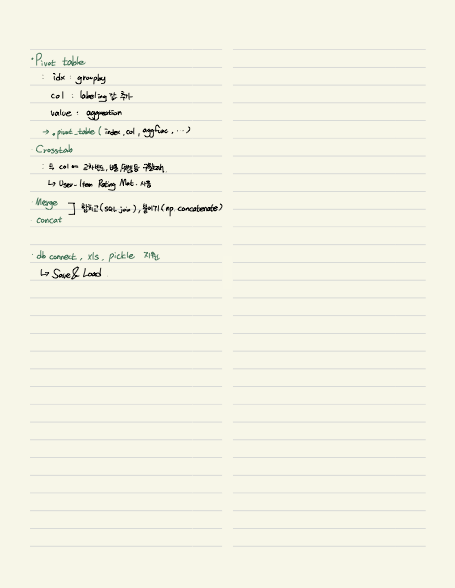 · Pivot table
: idx : groupby
col : labeling 값 추가
value : aggmetion
→ .pivot_table ( index, col, aggfunc, ... )
Crosstab
: 두 col의 교차빈도, 비율, 덧셈 등 구할때
↳ User-Item Rating Mat. 사용
· Merge
· concat
합치고 (SQL join), 붙이기 (np.concatenate)
· db connect, xls, pickle 지원
↳ Save & Load